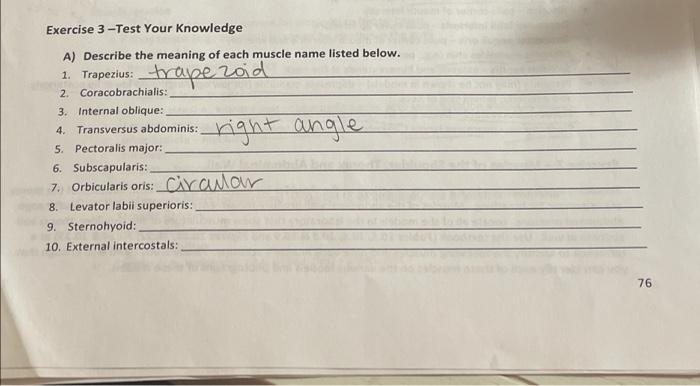 Exercise 3 –Test Your Knowledge
A) Describe the meaning of each muscle name listed below.
1. Trapezius: trapezoid
2. Coracobrachialis:
3. Internal oblique:
4. Transversus abdominis: right angle
5. Pectoralis major:
6. Subscapularis:
7. Orbicularis oris: circular
8. Levator labii superioris:
9. Sternohyoid:
10. External intercostals:
76